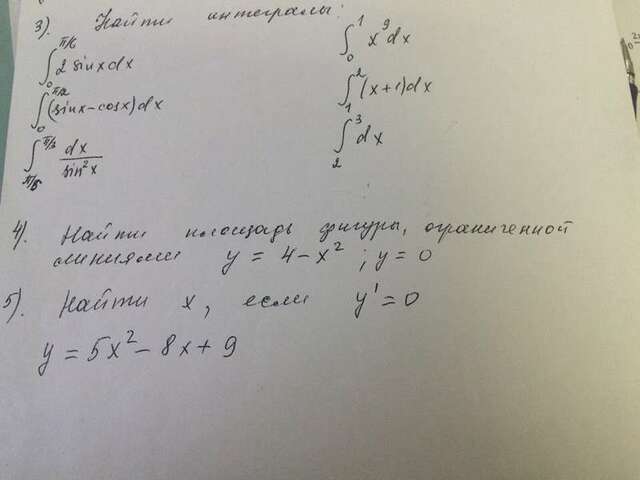 3). Найти интегралы:
∫₀^{π/6} 2 sinx dx
∫₀¹ x⁹dx
∫₀^{π/2} (sinx-cosx)dx
∫₁² (x+1)dx
∫ dx/sin²x
∫₂³ dx
4). Найти площадь фигуры, ограниченной
линиями y = 4-x² ; y = 0
5). Найти x, если y' = 0
y = 5x² - 8x + 9